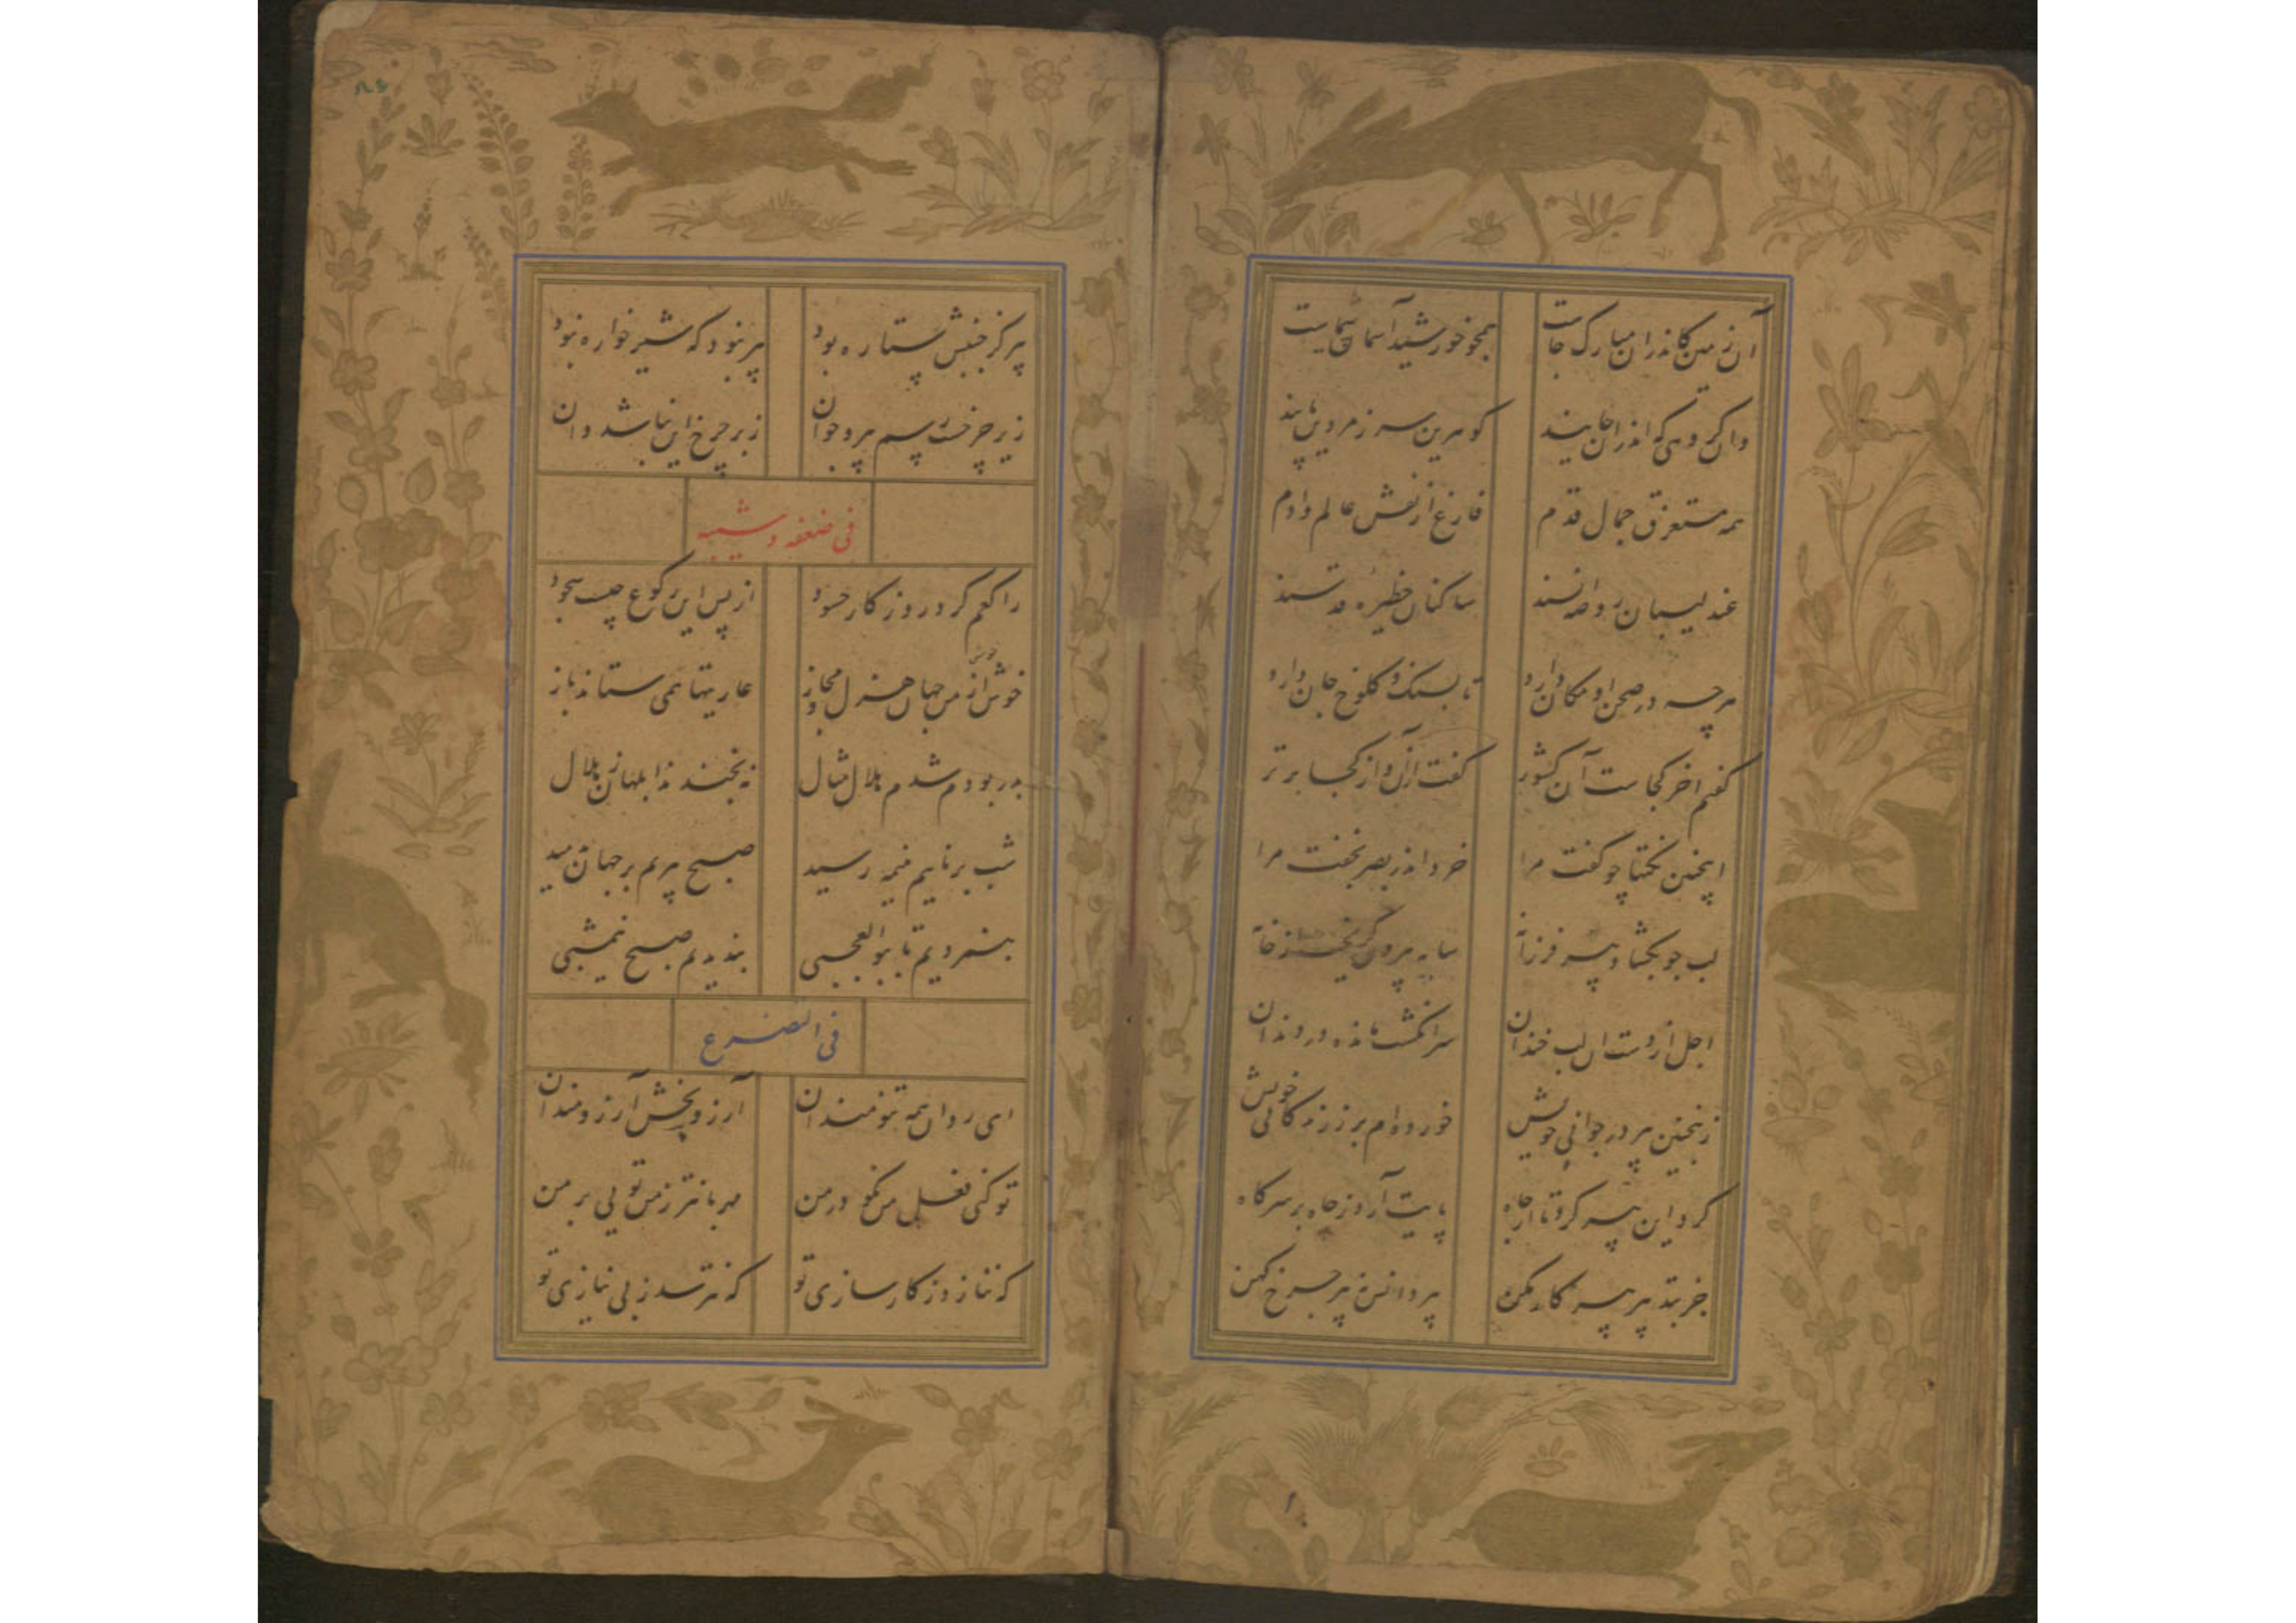 آن زمین کاندران مبارک جاست همچو خورشید آسمان شماست
وان گروهی که اندران جایند گوهرین سر زمردین پایند
همه مستغرق جمال قدم فارغ از نقش عالم و آدم
عندلیبان روضه انسند ساکنان حظیره قدسند
هرچه در صحن او مکان دارد تا بسنگ و کلوخ جان دارد
گفتم اخر کجاست آن کشور گفت ازان و از کجا برتر
اینچنین نکتها چو گفت مرا خرد اندر بصر بخفت مرا
لب چو بکشاد پیر فرزانه سایه بیرون گریخت از خانه
اجل از دست ان لب خندان سر انگشت مانده در دندان
زینچنین پیر در جوانی خویش خورده‌ام بر ز زندگانی خویش
کرد این پیر کرته از جاه پایت آرد ز چاه بر سر گاه
جز بتدبیر پیر کار مکن پیر دانش نه پیر چرخ کهن
پیر کز جنبش ستاره بود پیر نبود که شیرخواره بود
زیر چرخست پیر و جوان زبر چرخ این نباشد و ان
فی ضعفه و شیبه
راکعم کرد روزگار حسود از پس این رکوع چیست سجود
خوش خوش از من جهان هزل و مجاز عاریتها همی ستاند باز
بدر بودم شدم هلال مثال نه بخندند ابلهان ز هلال
شب برنائیم بنیمه رسید صبح پیریم بر جهان دمید
بنمردیم تا بوالعجبی بندیدیم صبح نیمشبی
فی التضرع
ای روان همه تنومندان آرزو بخش آرزومندان
تو کنی فعل من نکو در من مهربانتر ز من تویی بر من
که ننازد ز کارسازی تو که نترسد ز بی نیازی تو